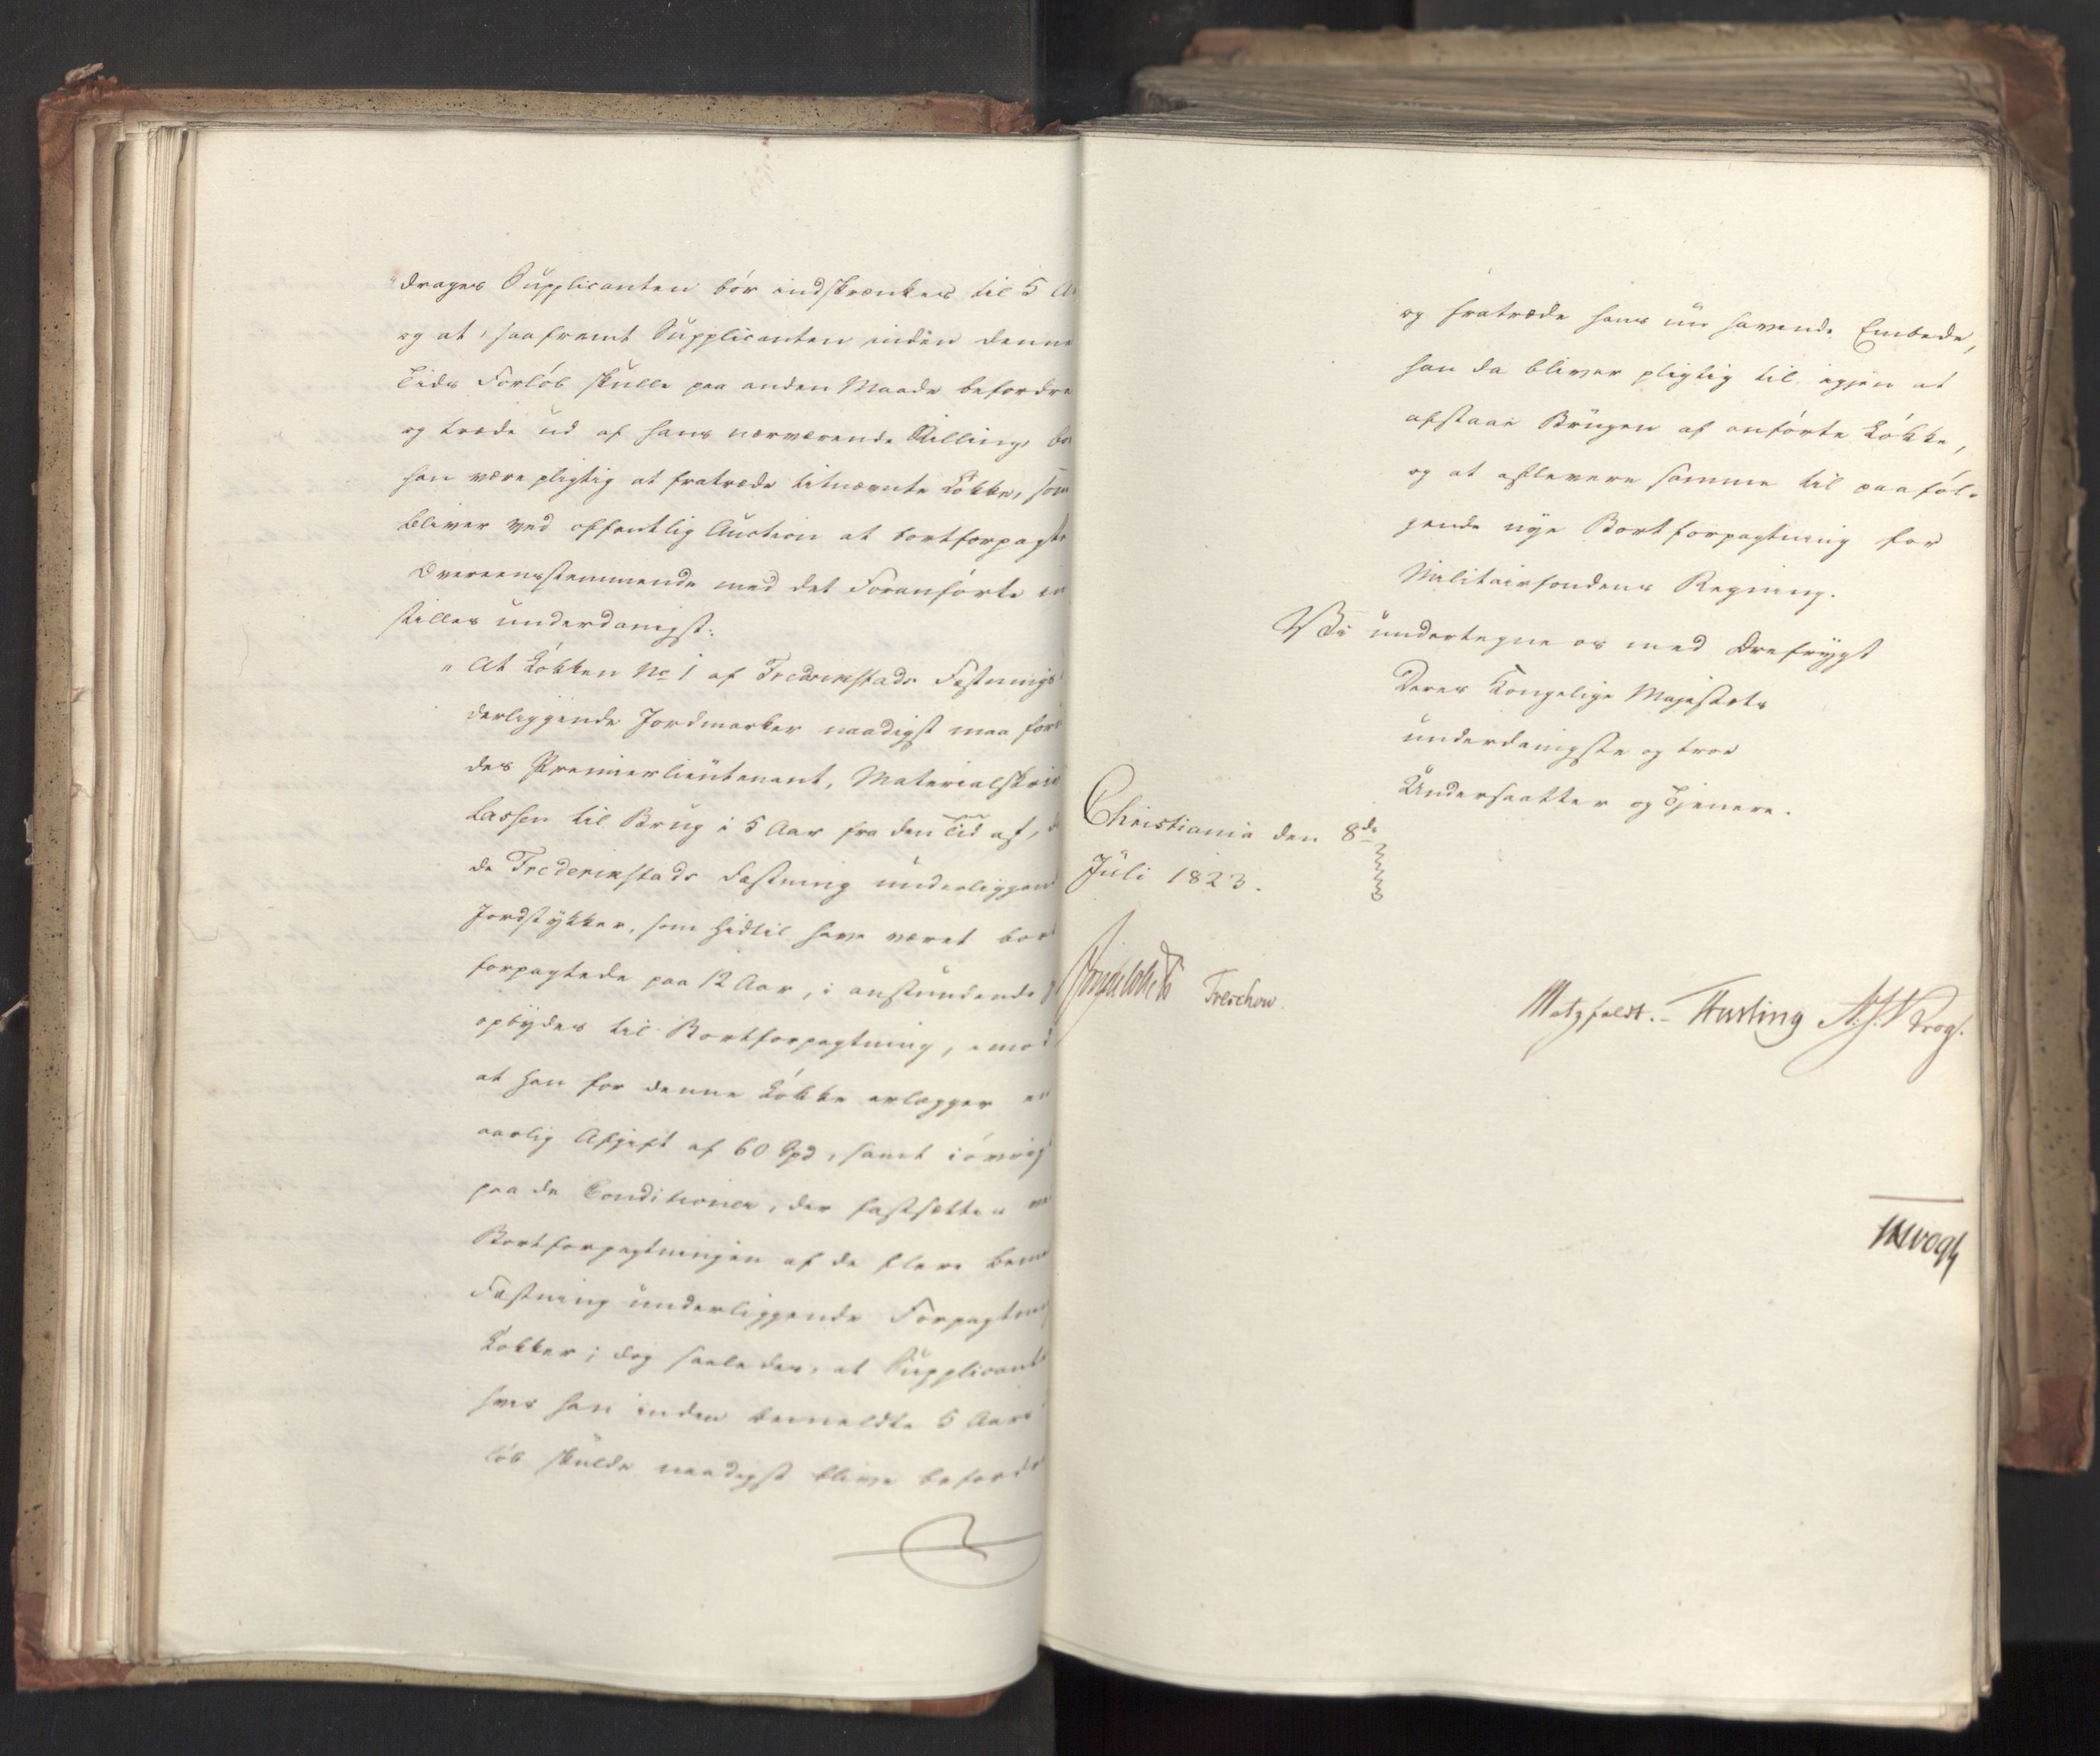 drages Supplicanten bør indskrænkes til 5 A
og at, saafremt Supplicanten inden denne
Tids Forløb skulle paa anden Maade befordre
og træde ud af hans nærværende Stilling, bø
han være pligtig at fratræde bemævnte Løkke, som
bliver ved offentlig Auction at bortforpagte
Overeensstemmende med det Foranførte in
stilles underdanigst:
"At Løkken No 1 af Fredrikstads Fæstnings
derliggende Jordmarker naadigst maa for
des Premierlieutenant, Materialskri
Lassen til Brug i 5 Aar fra den Tid af, d
de Frederikstads Fæstning underliggen
Jordstykker, som hidtil have været bort
forpagtede paa 12 Aar, i anstundende
opbydes til Bortforpagtning, imod
at han for denne Løkke erlægger en
aarlig Afgift af 60 Spd, samt iøvrig
paa de Conditioner, der fastsættes ve
Bortforpagtningen af de flere beme
Fæstning underliggende Forpagtnings
Løkker; dog saaledes, at Supplicant
hvis han inden bemeldte 5 Aars
løb skulde naadigst blive befordr
og fratræde hans nu havende Embede,
han da bliver pligtig til igjen at
afstaae Brugen af anførte Løkke,
og at aflevere samme til paaføl-
gende nye Bortforpagtning for
Militairfondens Regning.
Vi undertegne os med Ærefrygt
Deres Kongelige Majestets
underdanigste og troe
Undersaatter og Tjenere.
Christiania den 8de
Juli 1823.
Treschow.
Motzfeldt. Fasting